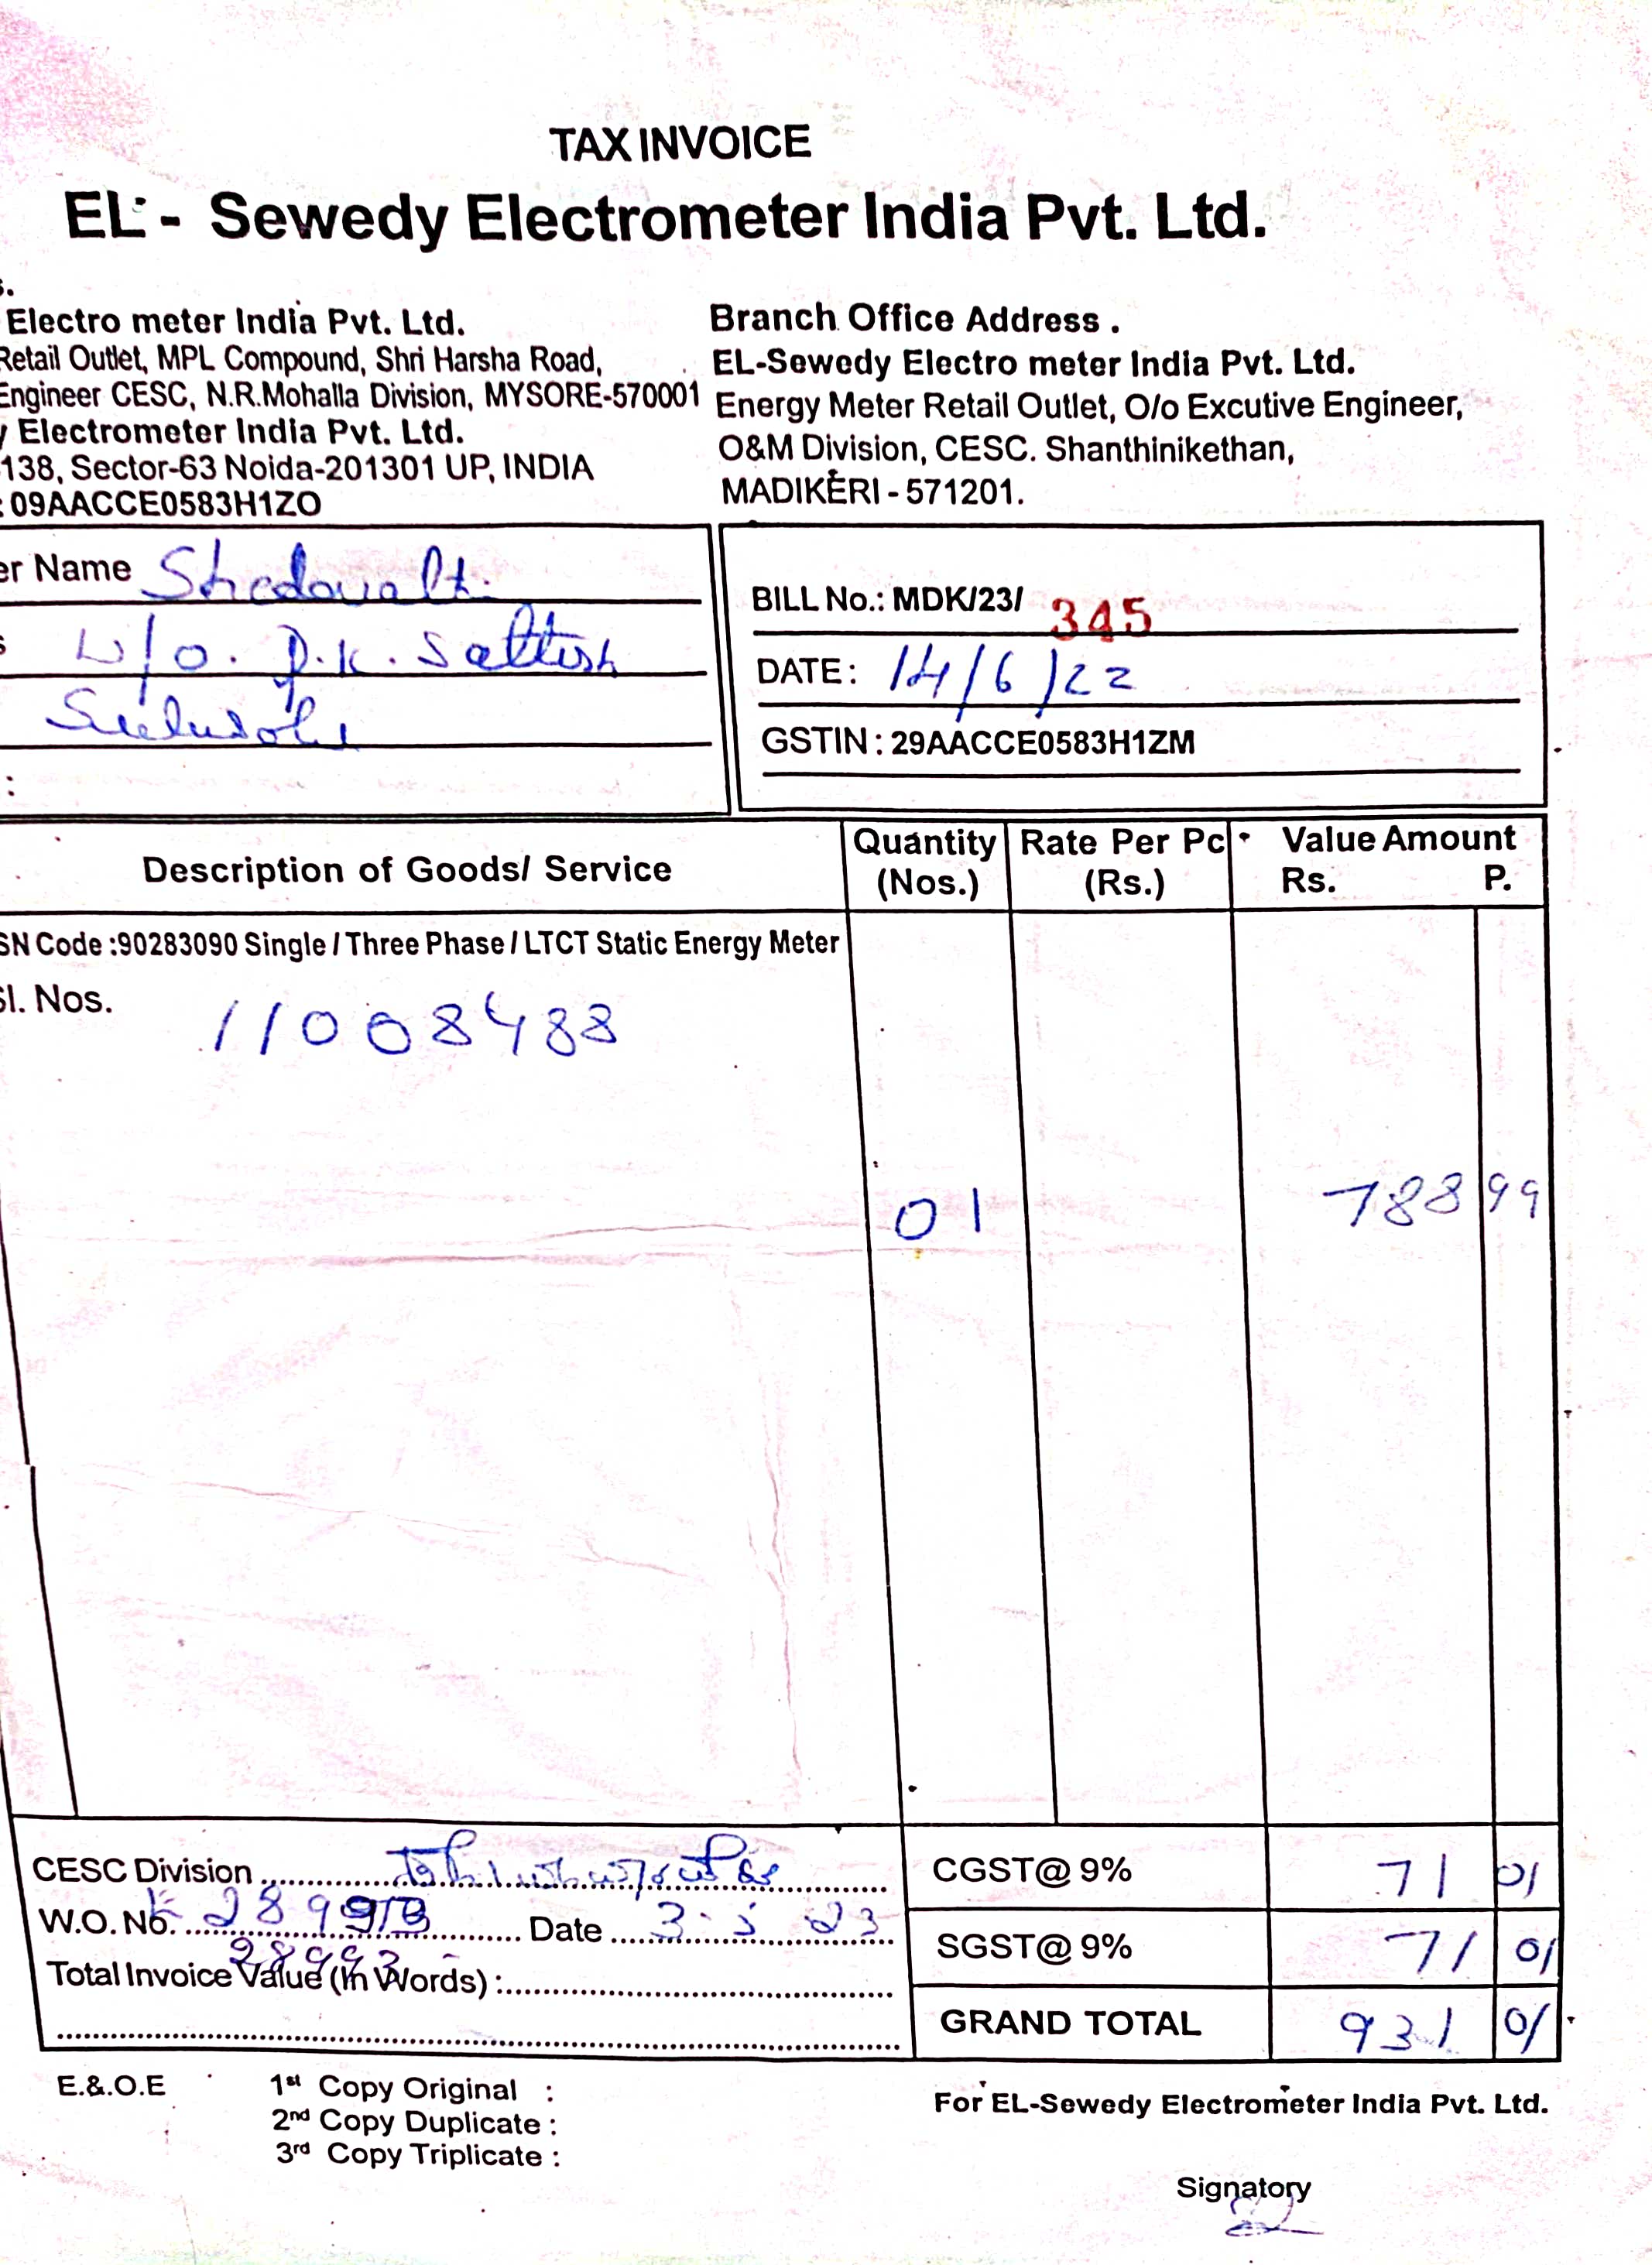 TAX INVOICE
EL - Sewedy Electrometer India Pvt. Ltd.
Electro meter India Pvt. Ltd.
Retail Outlet, MPL Compound, Shri Harsha Road,
Engineer CESC, N.R.Mohalla Division, MYSORE-570001
Electrometer India Pvt. Ltd.
138, Sector-63 Noida-201301 UP, INDIA
: 09AACCE0583H1ZO
Branch Office Address .
EL-Sewedy Electro meter India Pvt. Ltd.
Energy Meter Retail Outlet, O/o Excutive Engineer,
O&M Division, CESC. Shanthinikethan,
MADIKERI - 571201.
er Name
W/o. P.K. Sattish
:
BILL No.: MDK/23/ 345
DATE: 14/6/22
GSTIN : 29AACCE0583H1ZM
Description of Goods/ Service
Quantity (Nos.)
Rate Per Pc (Rs.)
Value Amount
Rs. P.
SN Code :90283090 Single / Three Phase / LTCT Static Energy Meter
Sl. Nos. 11008488
01 788 99
CESC Division
W.O. No. Date
28993
Total Invoice Value (In Words) :
CGST@ 9% 71 01
SGST@ 9% 71 01
GRAND TOTAL 931 01
E.&.O.E
1st Copy Original :
2nd Copy Duplicate :
3rd Copy Triplicate :
For EL-Sewedy Electrometer India Pvt. Ltd.
Signatory